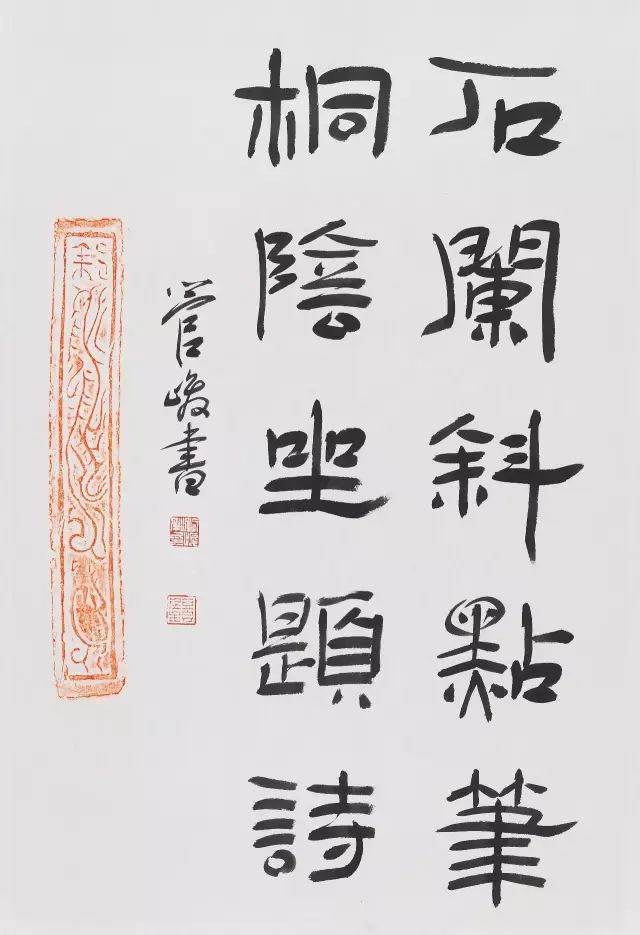 石闌斜點筆
桐陰坐題詩
管峻書